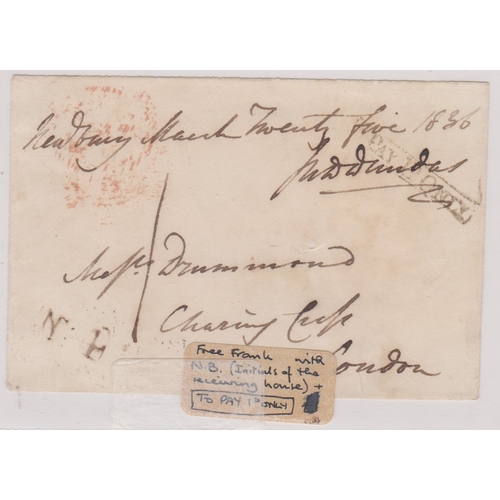 Newbury March Twenty five 1836
Dundas
Mess.rs Drummond
1
Charing Cross
London
N. B.
Free Frank with
N.B. (Initials of the
receiving house) +
TO PAY 1D ONLY